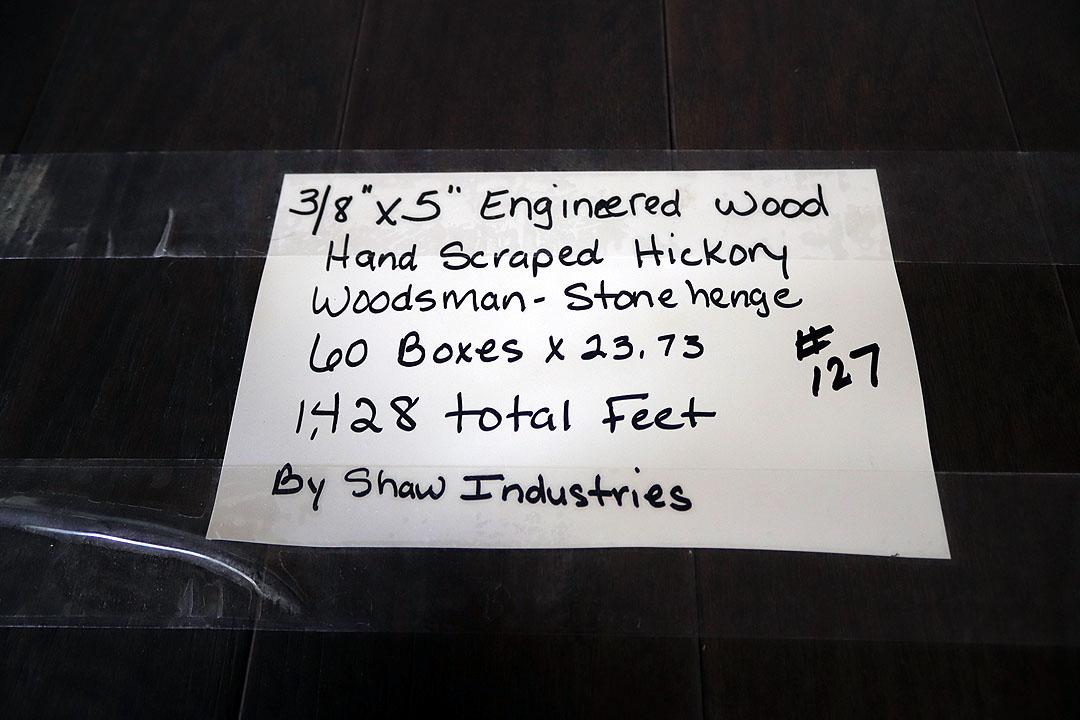 3/8" x 5" Engineered wood
Hand Scraped Hickory
Woodsman - Stonehenge
60 Boxes x 23.73
#127
1,428 total Feet
By Shaw Industries